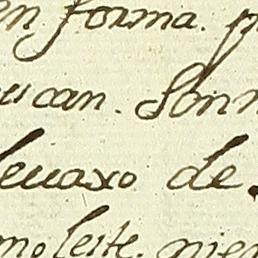 en forma. p
ucan. Sonn
leuaxo de.
moleste. pie